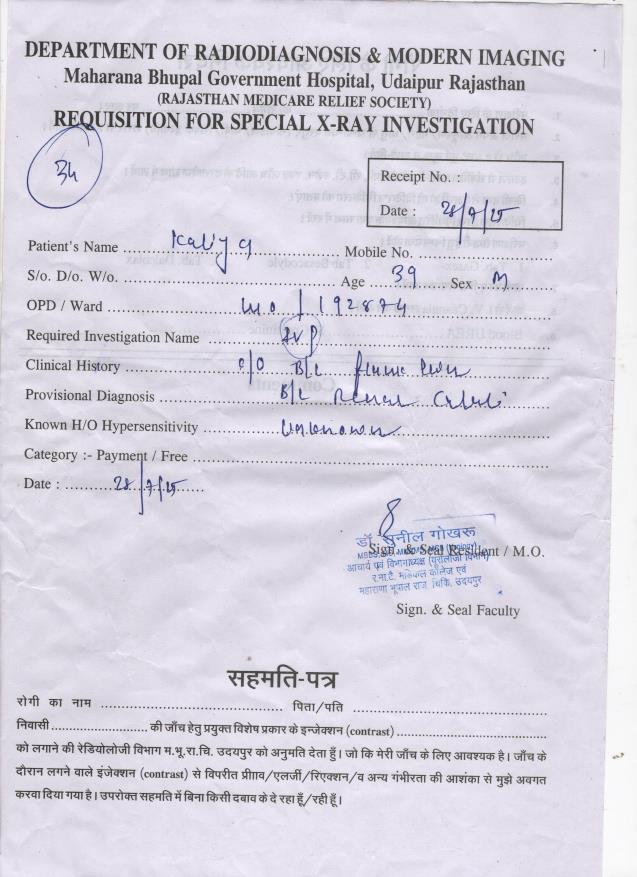 DEPARTMENT OF RADIODIAGNOSIS & MODERN IMAGING
Maharana Bhupal Government Hospital, Udaipur Rajasthan
(RAJASTHAN MEDICARE RELIEF SOCIETY)
REQUISITION FOR SPECIAL X-RAY INVESTIGATION
34
Receipt No. :
Date : 28/7/25
Patient's Name ............ Mobile No. ............
S/o. D/o. W/o. ............ Age 39 Sex M
OPD / Ward M.O / 192874
Required Investigation Name IVP
Clinical History c/o B/L flank pain
Provisional Diagnosis B/L Renal Calculi
Known H/O Hypersensitivity Unknown
Category :- Payment / Free ............
Date : 28/7/25
डॉ. सुनील गोखरू
Sign. & Seal Resident / M.O.
आचार्य एवं विभागाध्यक्ष (यूरोलॉजी विभाग)
र.ना.टै. मेडिकल कॉलेज एवं
महाराणा भूपाल राज. चिकि. उदयपुर
Sign. & Seal Faculty
सहमति-पत्र
रोगी का नाम ............ पिता/पति ............
निवासी ............ की जाँच हेतु प्रयुक्त विशेष प्रकार के इन्जेक्शन (contrast) ............
को लगाने की रेडियोलोजी विभाग म.भू.रा.चि. उदयपुर को अनुमति देता हूँ। जो कि मेरी जाँच के लिए आवश्यक है। जाँच के
दौरान लगने वाले इंजेक्शन (contrast) से विपरीत प्रीााव/एलर्जी/रिएक्शन/व अन्य गंभीरता की आशंका से मुझे अवगत
करवा दिया गया है। उपरोक्त सहमति में बिना किसी दबाव के दे रहा हूँ/रही हूँ।